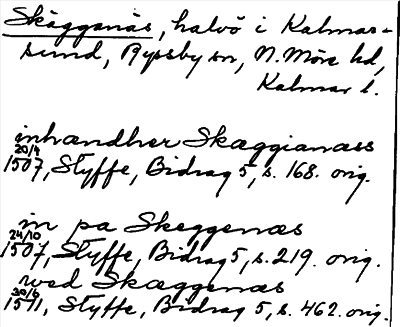 Skäggenäs, halvö i Kalmar-
sund, Ryssby sn, N. Möre hd,
Kalmar l.
inhændher Skæggianæss
20/4 1507, Styffe, Bidrag 5, s. 168. orig.
in pa Skeggenæs
24/10 1507, Styffe, Bidrag 5, s. 219. orig.
wed Skæggenæs
30/6 1511, Styffe, Bidrag 5, s. 462. orig.